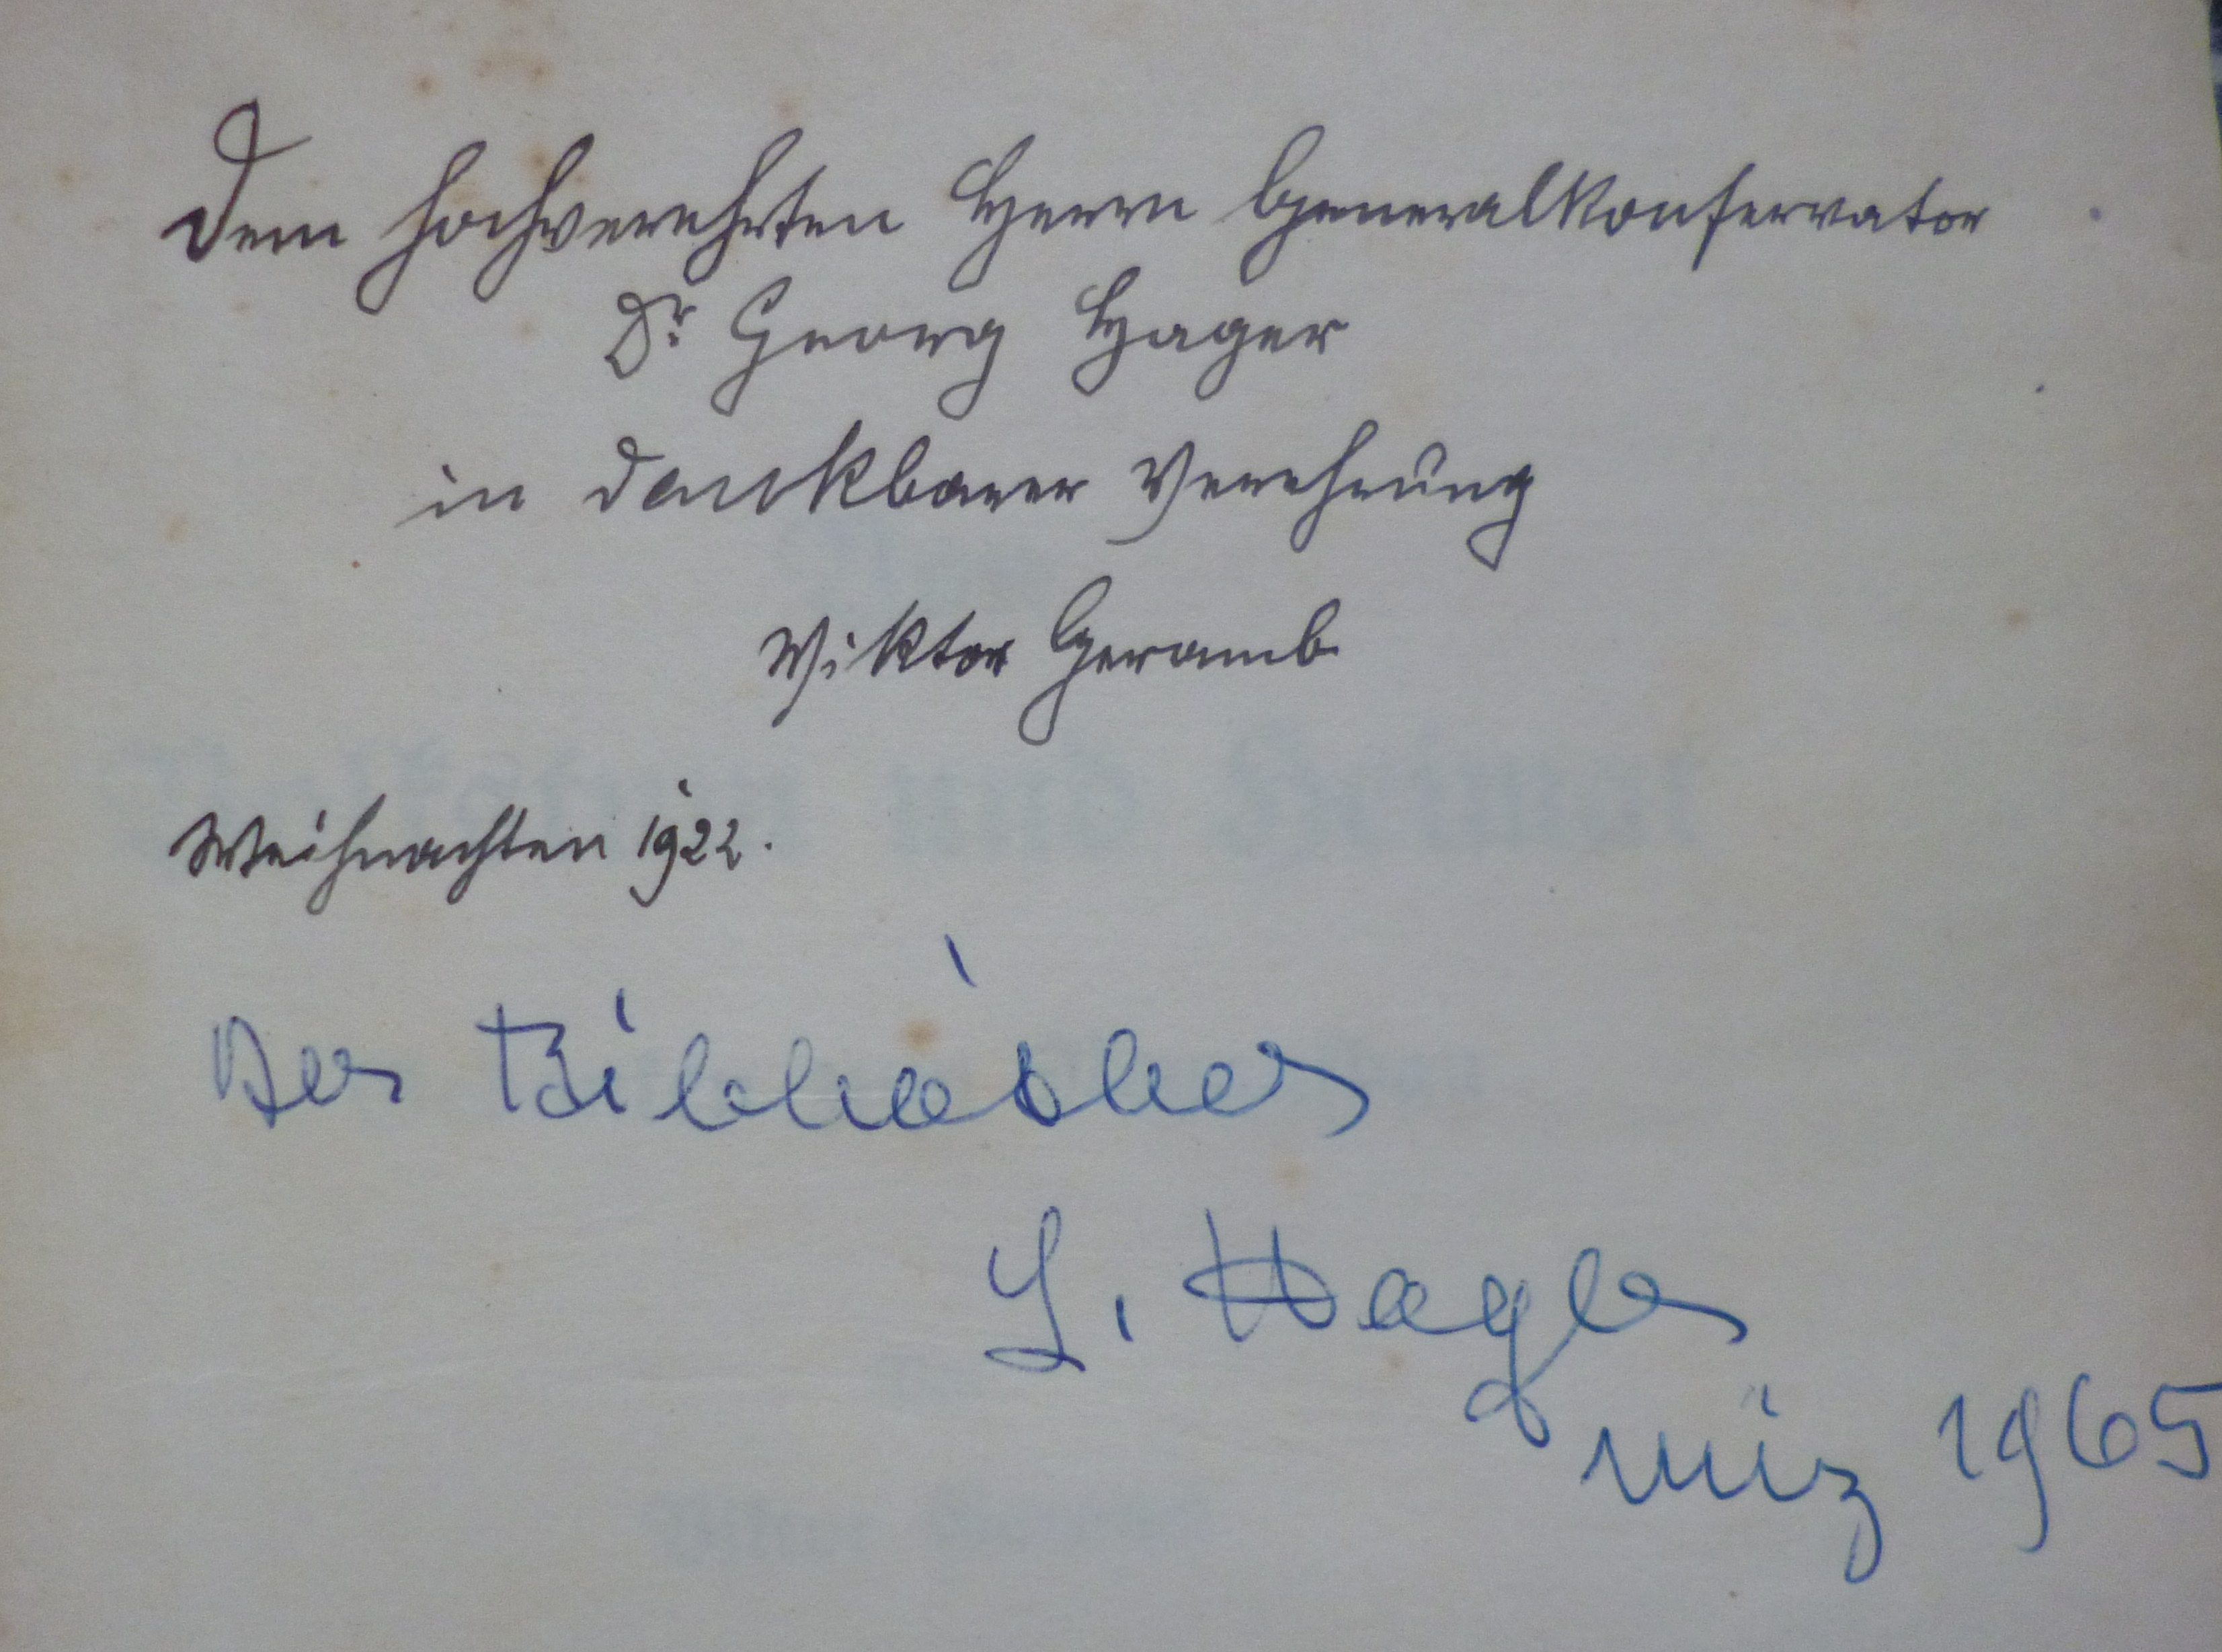 Dem hochverehrten Herrn Generalkonservator
Dr Georg Hager
in dankbarer Verehrung
Viktor Geramb
Weihnachten 1922.
Der
L. Hager
März 1965